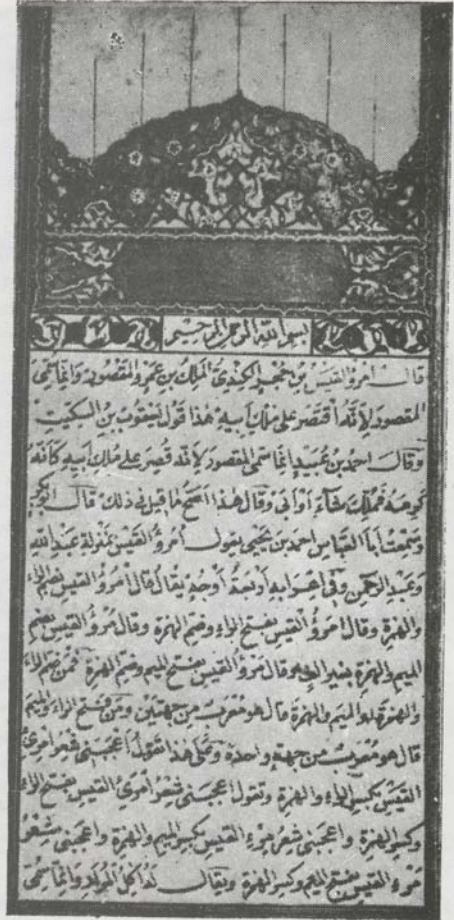 بسم الله الرحمن الرحيم
قال امرؤ القيس بن حجر الكندي الملك بن عمرو المقصور وانما سمى
المقصور لأنه اقتصر على ملك ابيه هذا قول يعقوب بن السكيت
وقال احمد بن عبيد انما سمى المقصور لأنه قصر على ملك ابيه كأنه
كرهه فملك شاء او ابى وقال هذا اصح ما قيل في ذلك قال ابو بكر
وسمعت أبا العباس احمد بن يحيى يقول امرؤ القيس بمنزلة عبد الله
وعبد الرحمن وفي اعرابه أربعة أوجه يقال قال امرؤ القيس بضم الراء
والهمزة وقال امرَؤ القيس بفتح الراء وضم الهمزة وقال مُرؤ القيس بضم
الميم والهمزة بغير الف وقال مَرؤ القيس بفتح الميم وضم الهمزة فمن ضم الراء
والهمزة او الميم والهمزة قال هو معرب من جهتين ومن فتح الراء والميم
قال هو معرب من جهة واحدة وعلى هذا تقول أعجبني شعر امرئ
القيس بكسر الراء والهمزة وتقول اعجبني شعر امرَئ القيس بفتح الراء
وكسر الهمزة واعجبني شعر مِرء القيس بكسر الميم والهمزة واعجبني شعر
مَرء القيس بفتح الميم وكسر الهمزة ويقال له وانما سمى